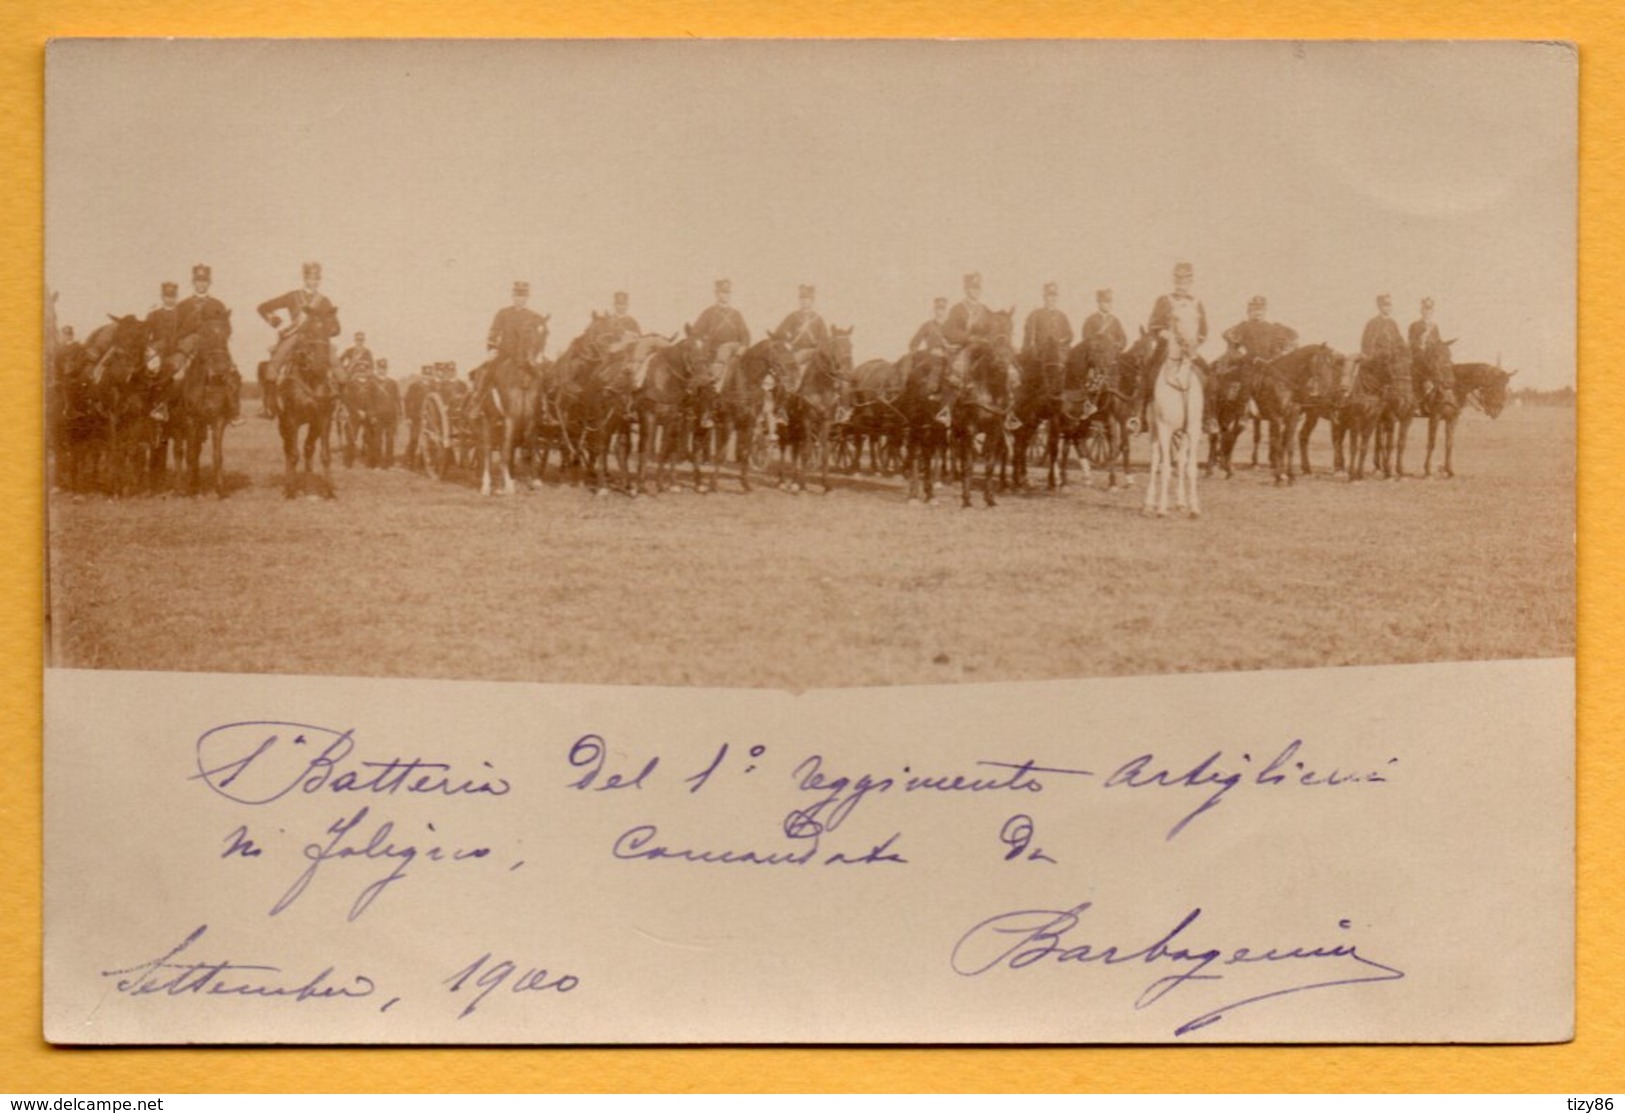 1ª Batteria Del 1º reggimento Artiglieria
in Foligno, Comandata Da
Barbagemin
Settembre, 1900
www.delcampe.net
tizy86